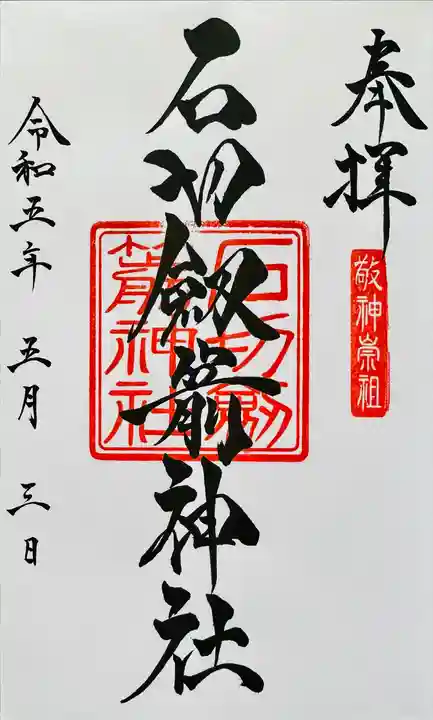 奉拝
敬神崇祖
石切剱箭神社
石切剱
箭神社
令和五年 五月 三日